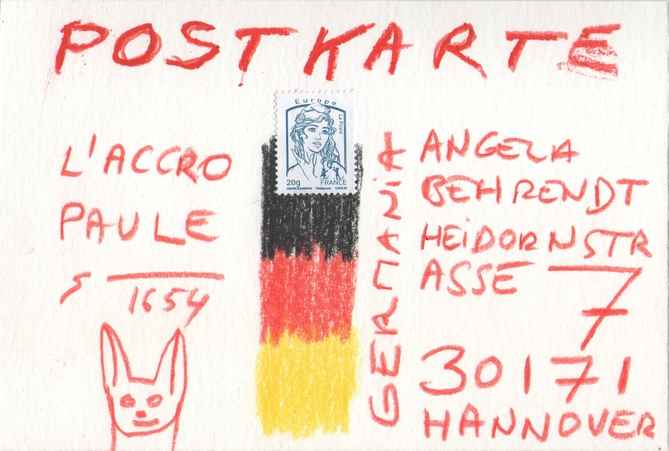 POSTKARTE
Europe
La Poste
20g
FRANCE
L'ACCRO
PAULE
1654
GERMANIA
ANGELA
BEHRENDT
HEIDORNSTR
ASSE 7
30171
HANNOVER